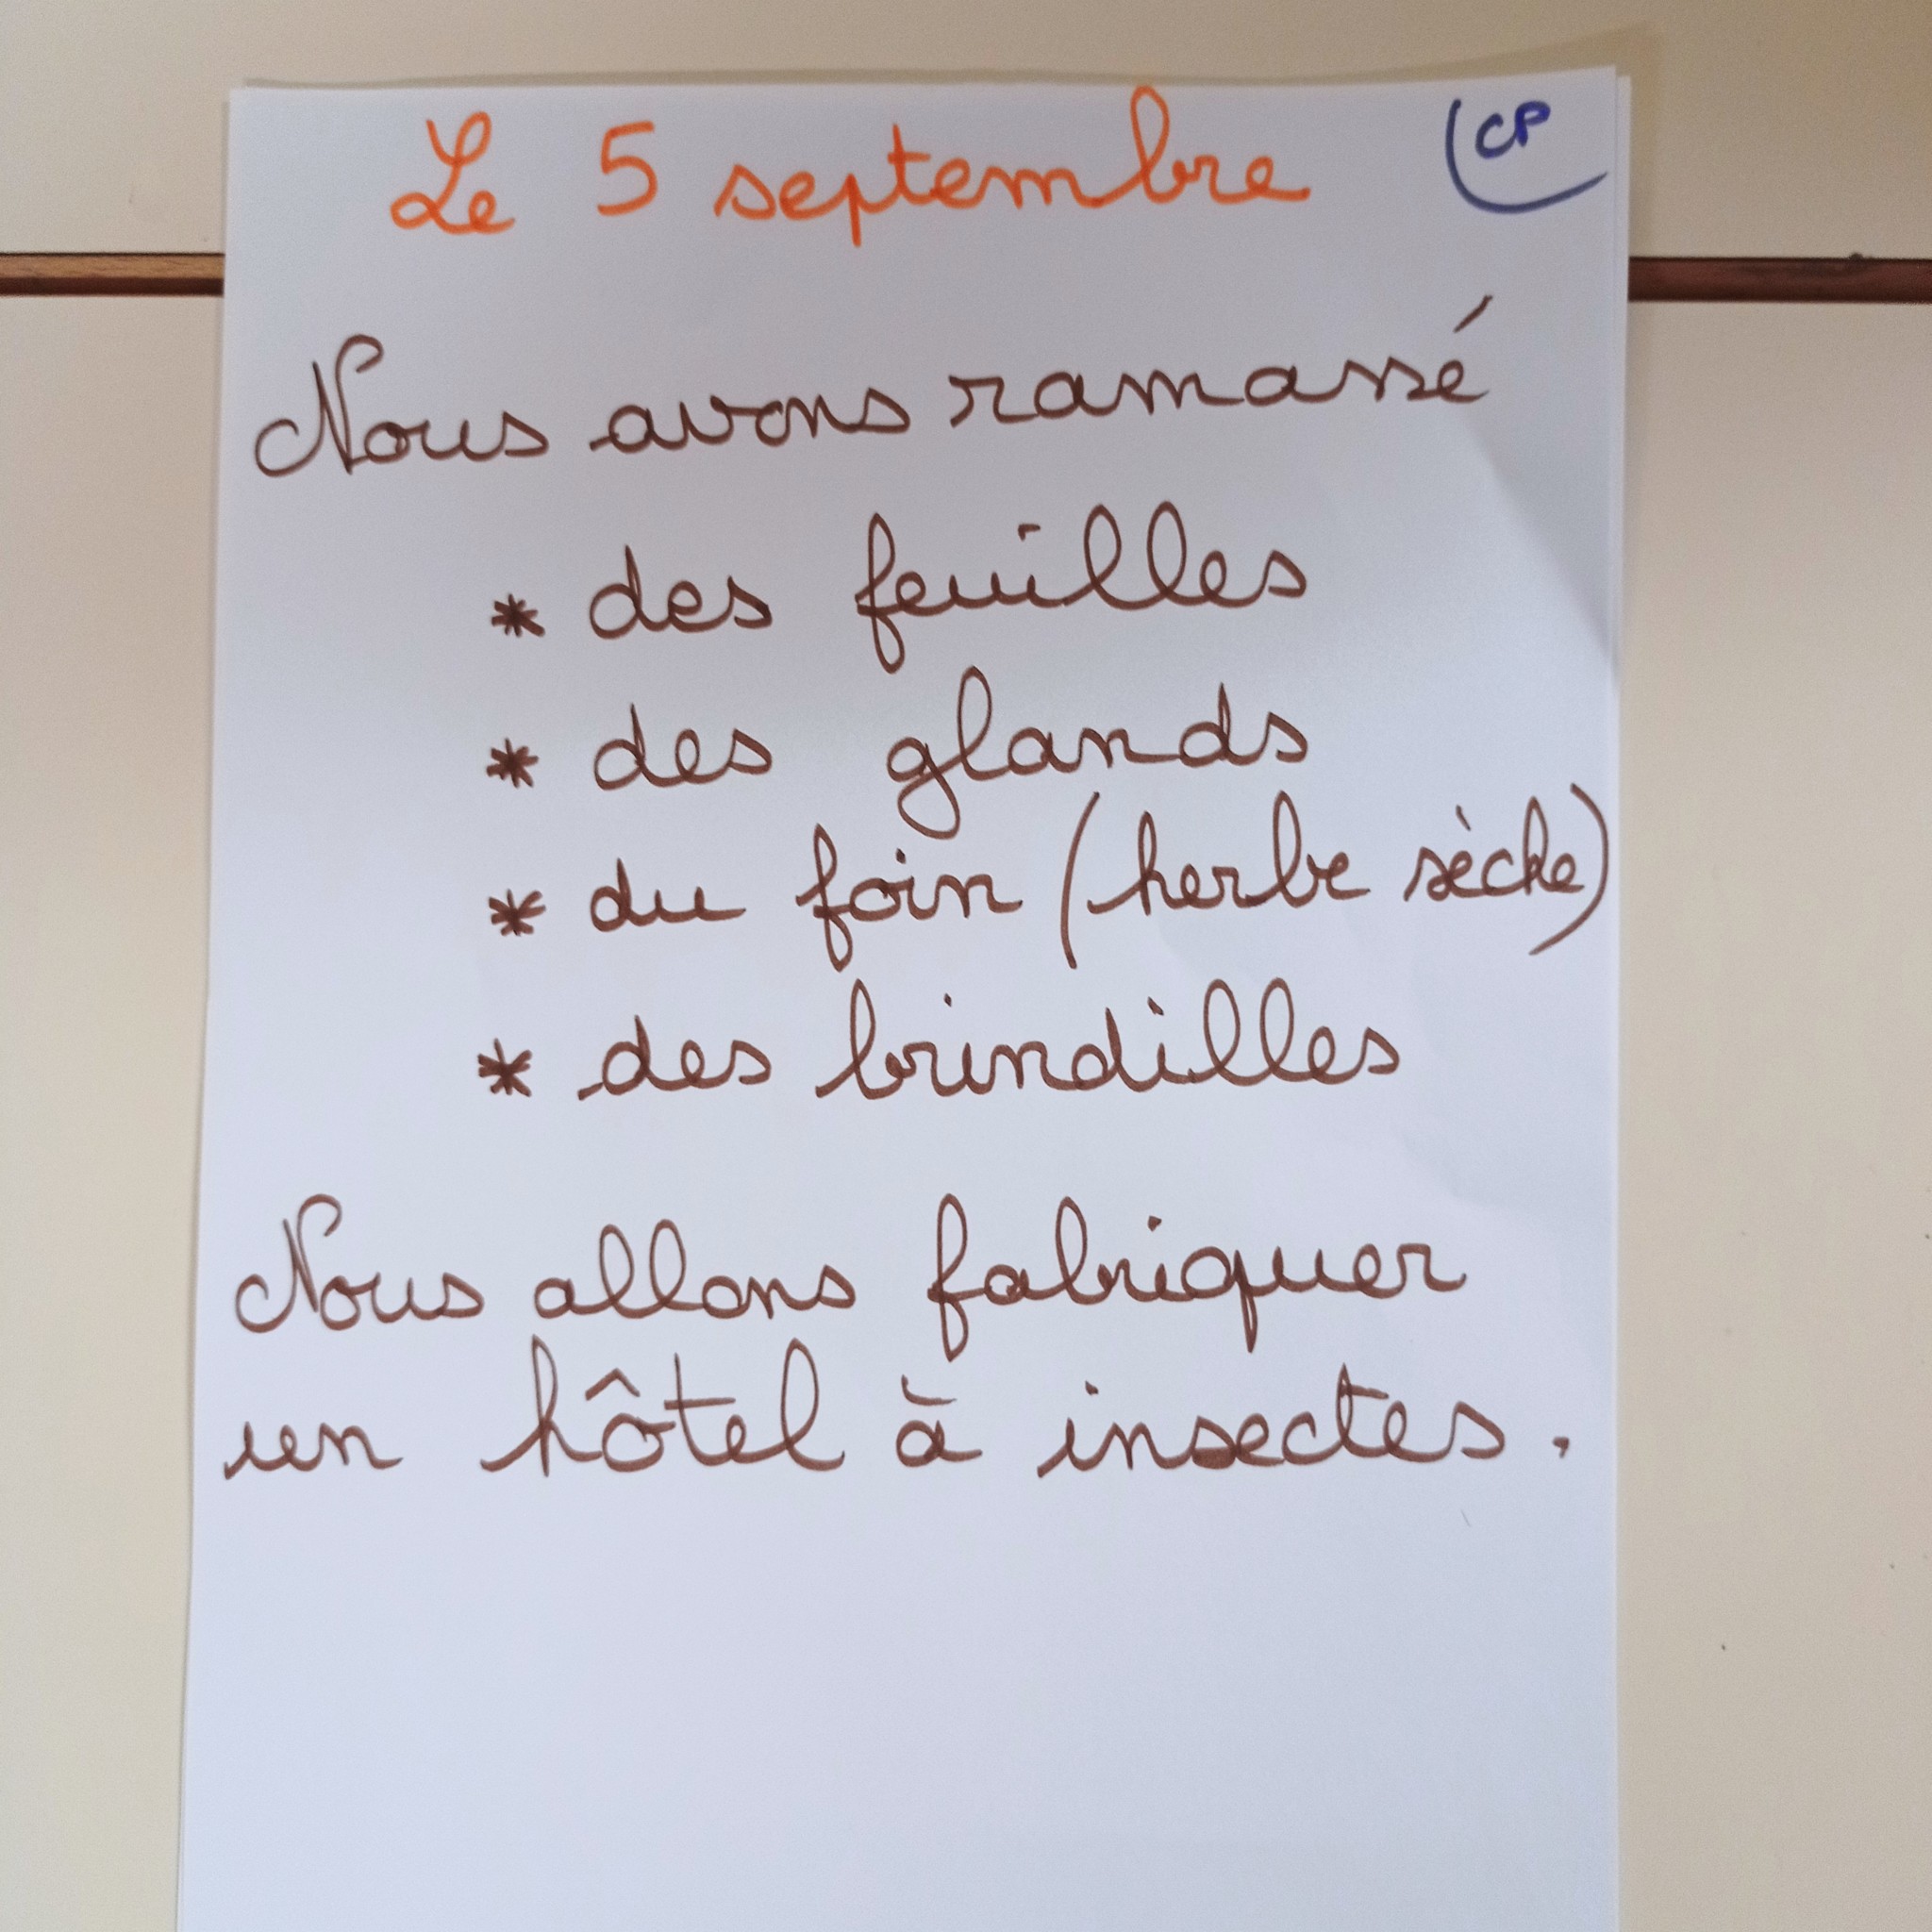 Le 5 septembre CP
Nous avons ramassé
* des feuilles
* des glands
* du foin (herbe sèche)
* des brindilles
Nous allons fabriquer
un hôtel à insectes.